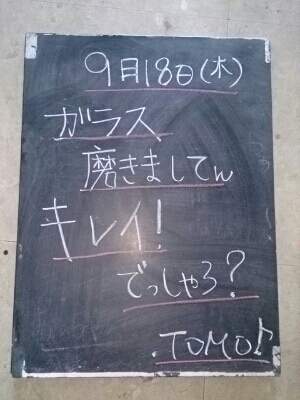 9月18日(木)
ガラス
磨きましてん
キレイ!
でっしゃろ?
.TOMO♪